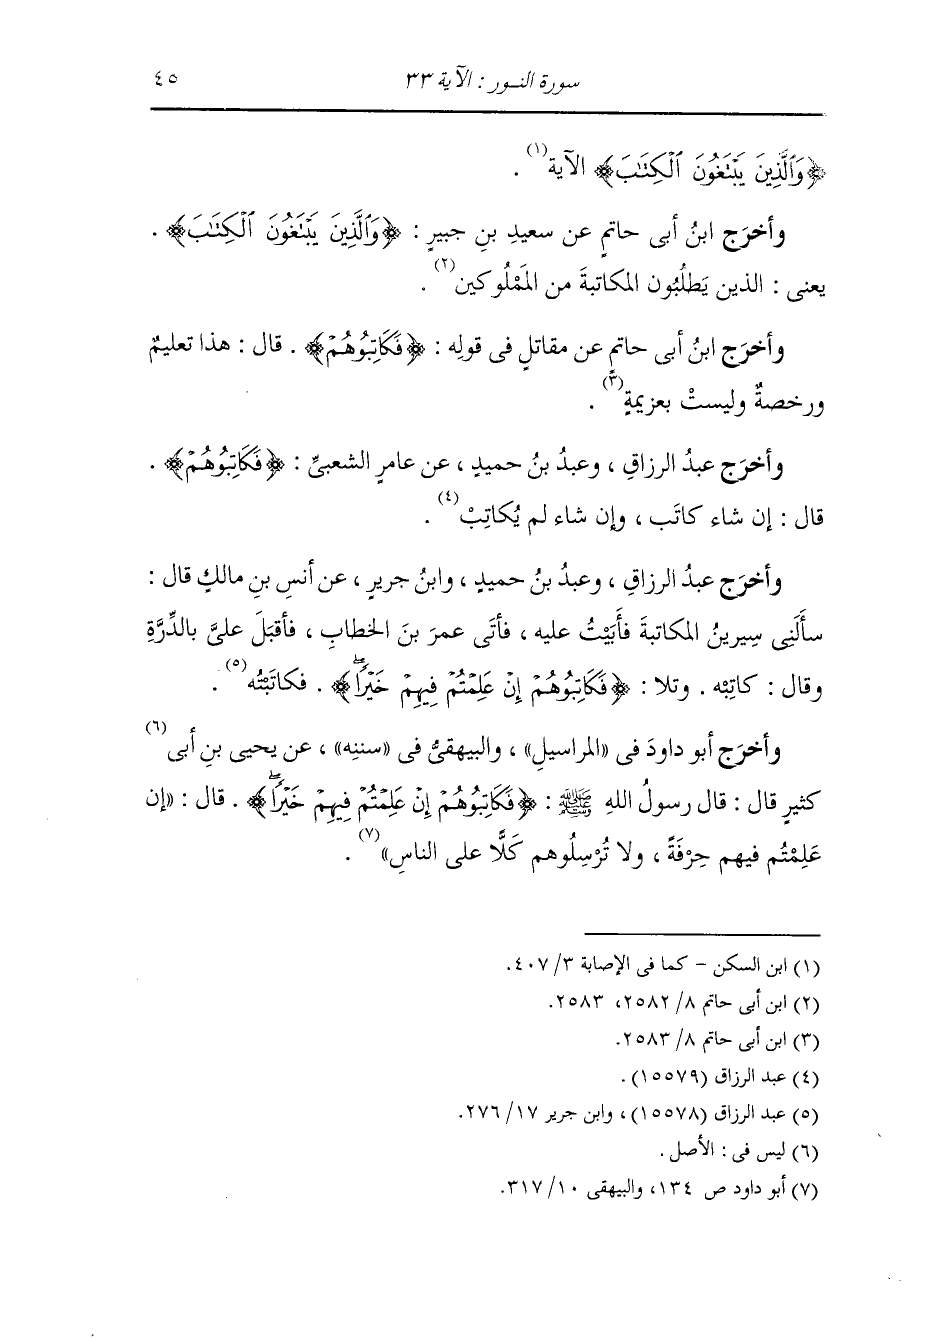 سورة النور : الآية ٣٣ ٤٥
﴿وَٱلَّذِينَ يَبْتَغُونَ ٱلْكِتَٰبَ﴾ الآية(١) .
وأخرَج ابنُ أبى حاتمٍ عن سعيدِ بنِ جبيرٍ : ﴿وَٱلَّذِينَ يَبْتَغُونَ ٱلْكِتَٰبَ﴾ .
يعنى : الذين يَطلُبُون المكاتبةَ من المَمْلُوكين(٢) .
وأخرَج ابنُ أبى حاتمٍ عن مقاتلٍ فى قولِه : ﴿فَكَاتِبُوهُمْ﴾ . قال : هذا تعليمٌ
ورخصةٌ وليستْ بعزيمةٍ(٣) .
وأخرَج عبدُ الرزاقِ ، وعبدُ بنُ حميدٍ ، عن عامرٍ الشعبىِّ : ﴿فَكَاتِبُوهُمْ﴾ .
قال : إن شاء كاتَب ، وإن شاء لم يُكاتِبْ(٤) .
وأخرَج عبدُ الرزاقِ ، وعبدُ بنُ حميدٍ ، وابنُ جريرٍ ، عن أنسِ بنِ مالكٍ قال :
سألَنى سِيرينُ المكاتبةَ فأَبَيْتُ عليه ، فأتَى عمرَ بنَ الخطابِ ، فأقبَلَ علىَّ بالدِّرَّةِ
وقال : كاتِبْه . وتلا : ﴿فَكَاتِبُوهُمْ إِنْ عَلِمْتُمْ فِيهِمْ خَيْرًا﴾ . فكاتَبْتُه(٥) .
وأخرَج أبو داودَ فى «المراسيلِ» ، والبيهقىُّ فى «سننِه» ، عن يحيى بنِ أبى(٦)
كثيرٍ قال : قال رسولُ اللهِ ﷺ : ﴿فَكَاتِبُوهُمْ إِنْ عَلِمْتُمْ فِيهِمْ خَيْرًا﴾ . قال : «إن
عَلِمْتُم فيهم حِرْفَةً ، ولا تُرْسِلُوهم كَلًّا على الناسِ»(٧) .
(١) ابن السكن - كما فى الإصابة ٣/ ٤٠٧.
(٢) ابن أبى حاتم ٨/ ٢٥٨٢، ٢٥٨٣.
(٣) ابن أبى حاتم ٨/ ٢٥٨٣.
(٤) عبد الرزاق (١٥٥٧٩) .
(٥) عبد الرزاق (١٥٥٧٨) ، وابن جرير ١٧/ ٢٧٦.
(٦) ليس فى : الأصل .
(٧) أبو داود ص ١٣٤، والبيهقى ١٠/ ٣١٧.